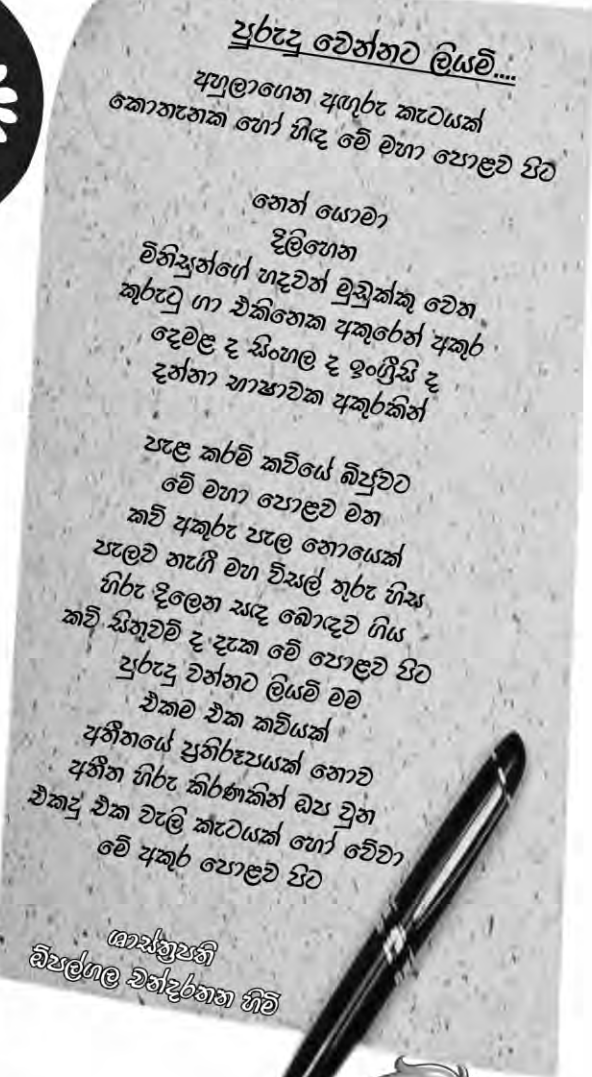 පුරුදු වෙන්නට ලියමි....
අහුලාගෙන අඟුරු කැටයක්
කොතැනක හෝ හිඳ මේ මහා පොළව පිට
නෙත් යොමා
දිලිහෙන
මිනිසුන්ගේ හදවත් මුඩුක්කු වෙත
කුරුටු ගා එකිනෙක අකුරෙන් අකුර
දෙමළ ද සිංහල ද ඉංග්‍රීසි ද
දන්නා භාෂාවක අකුරකින්
පැළ කරමි කවියේ බිජුවට
මේ මහා පොළව මත
කවි අකුරු පැල නොයෙක්
පැලව නැගී මහ විසල් තුරු හිස
හිරු දිලෙන සඳ බොඳව ගිය
කවි සිතුවම් ද දැක මේ පොළව පිට
පුරුදු වන්නට ලියමි මම
එකම එක කවියක්
අතීතයේ ප්‍රතිරූපයක් නොව
අතීත හිරු කිරණකින් ඔප වුන
එකදු එක වැලි කැටයක් හෝ වේවා
මේ අකුර පොළව පිට
ශාස්ත්‍රපති
ඕපල්ගල චන්දරතන හිමි